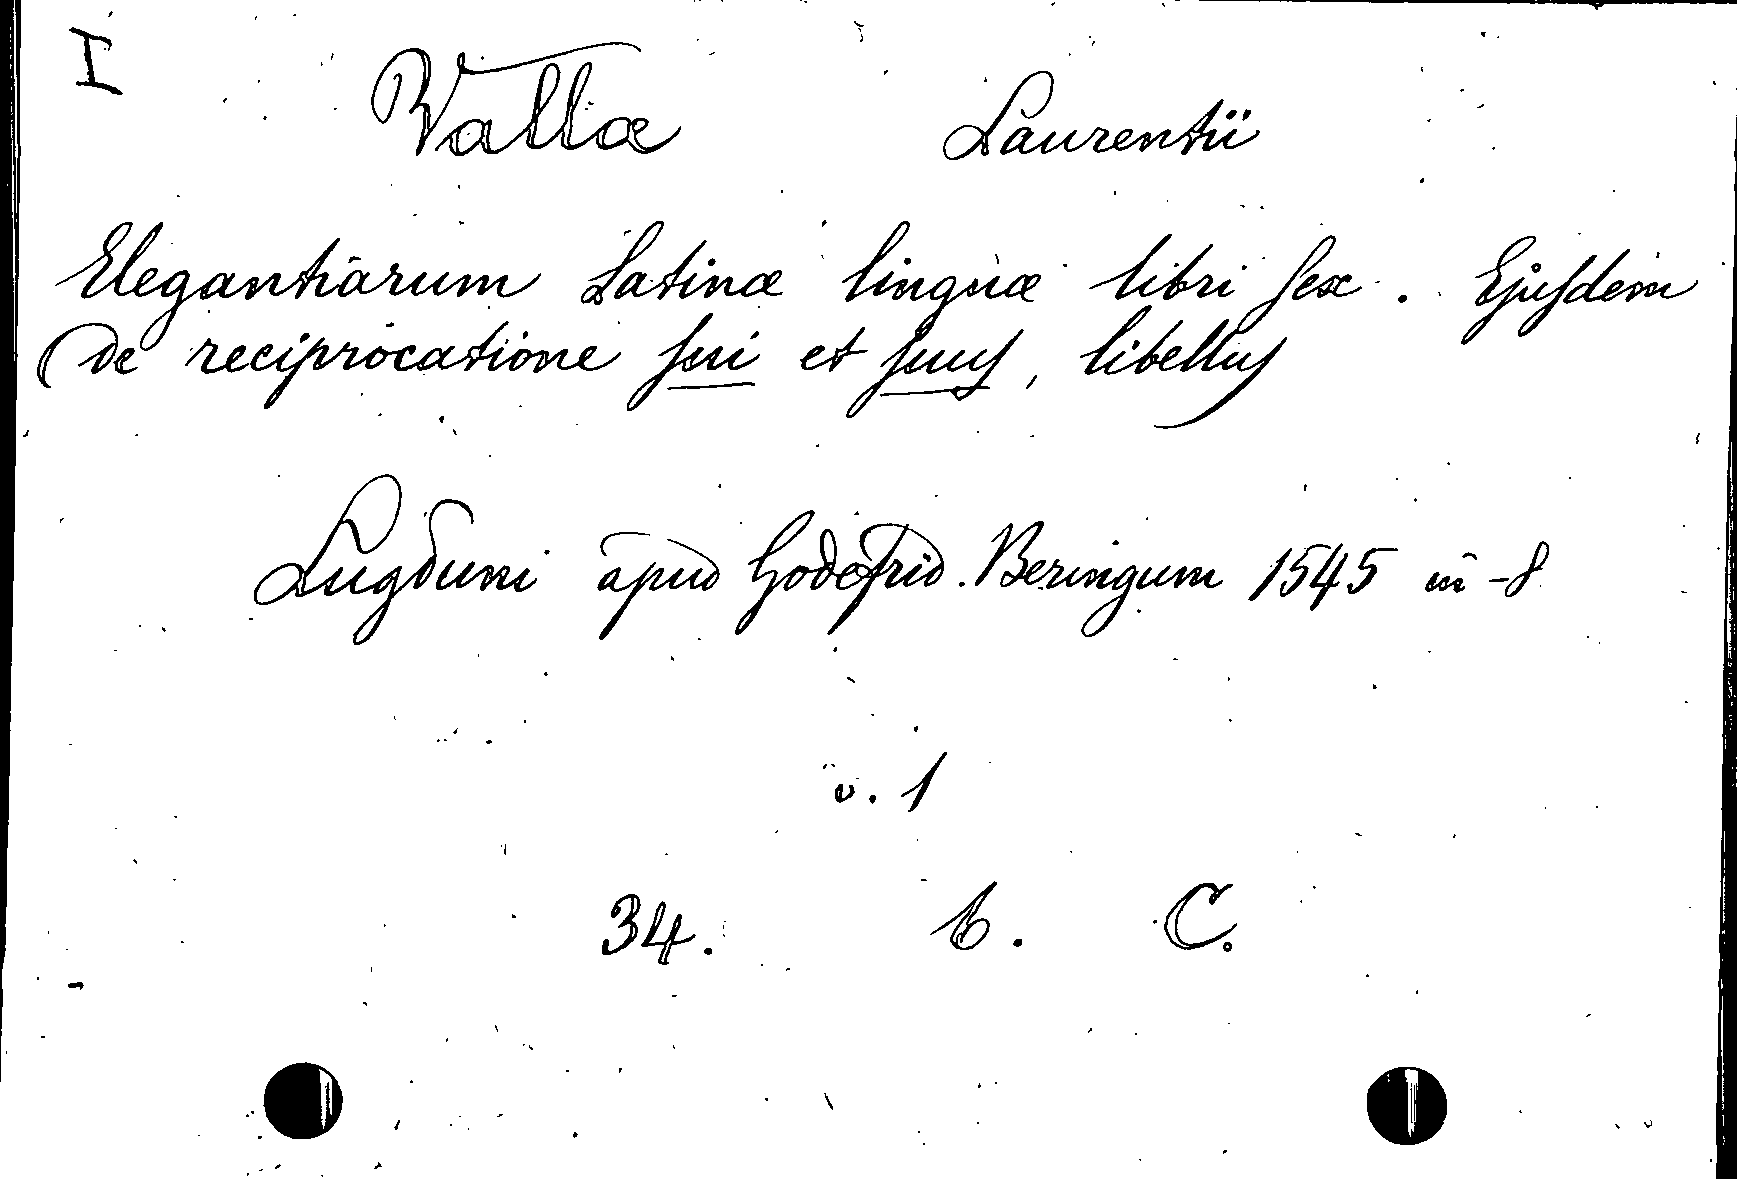 I
Vallæ Laurentii
Elegantiarum Latinæ linguæ libri ſex. Ejuſdem
De reciprocatione ſui et ſuus, libellus
Lugduni apud Godofrid. Beringum 1545 in-8
v. 1
34. b. C.